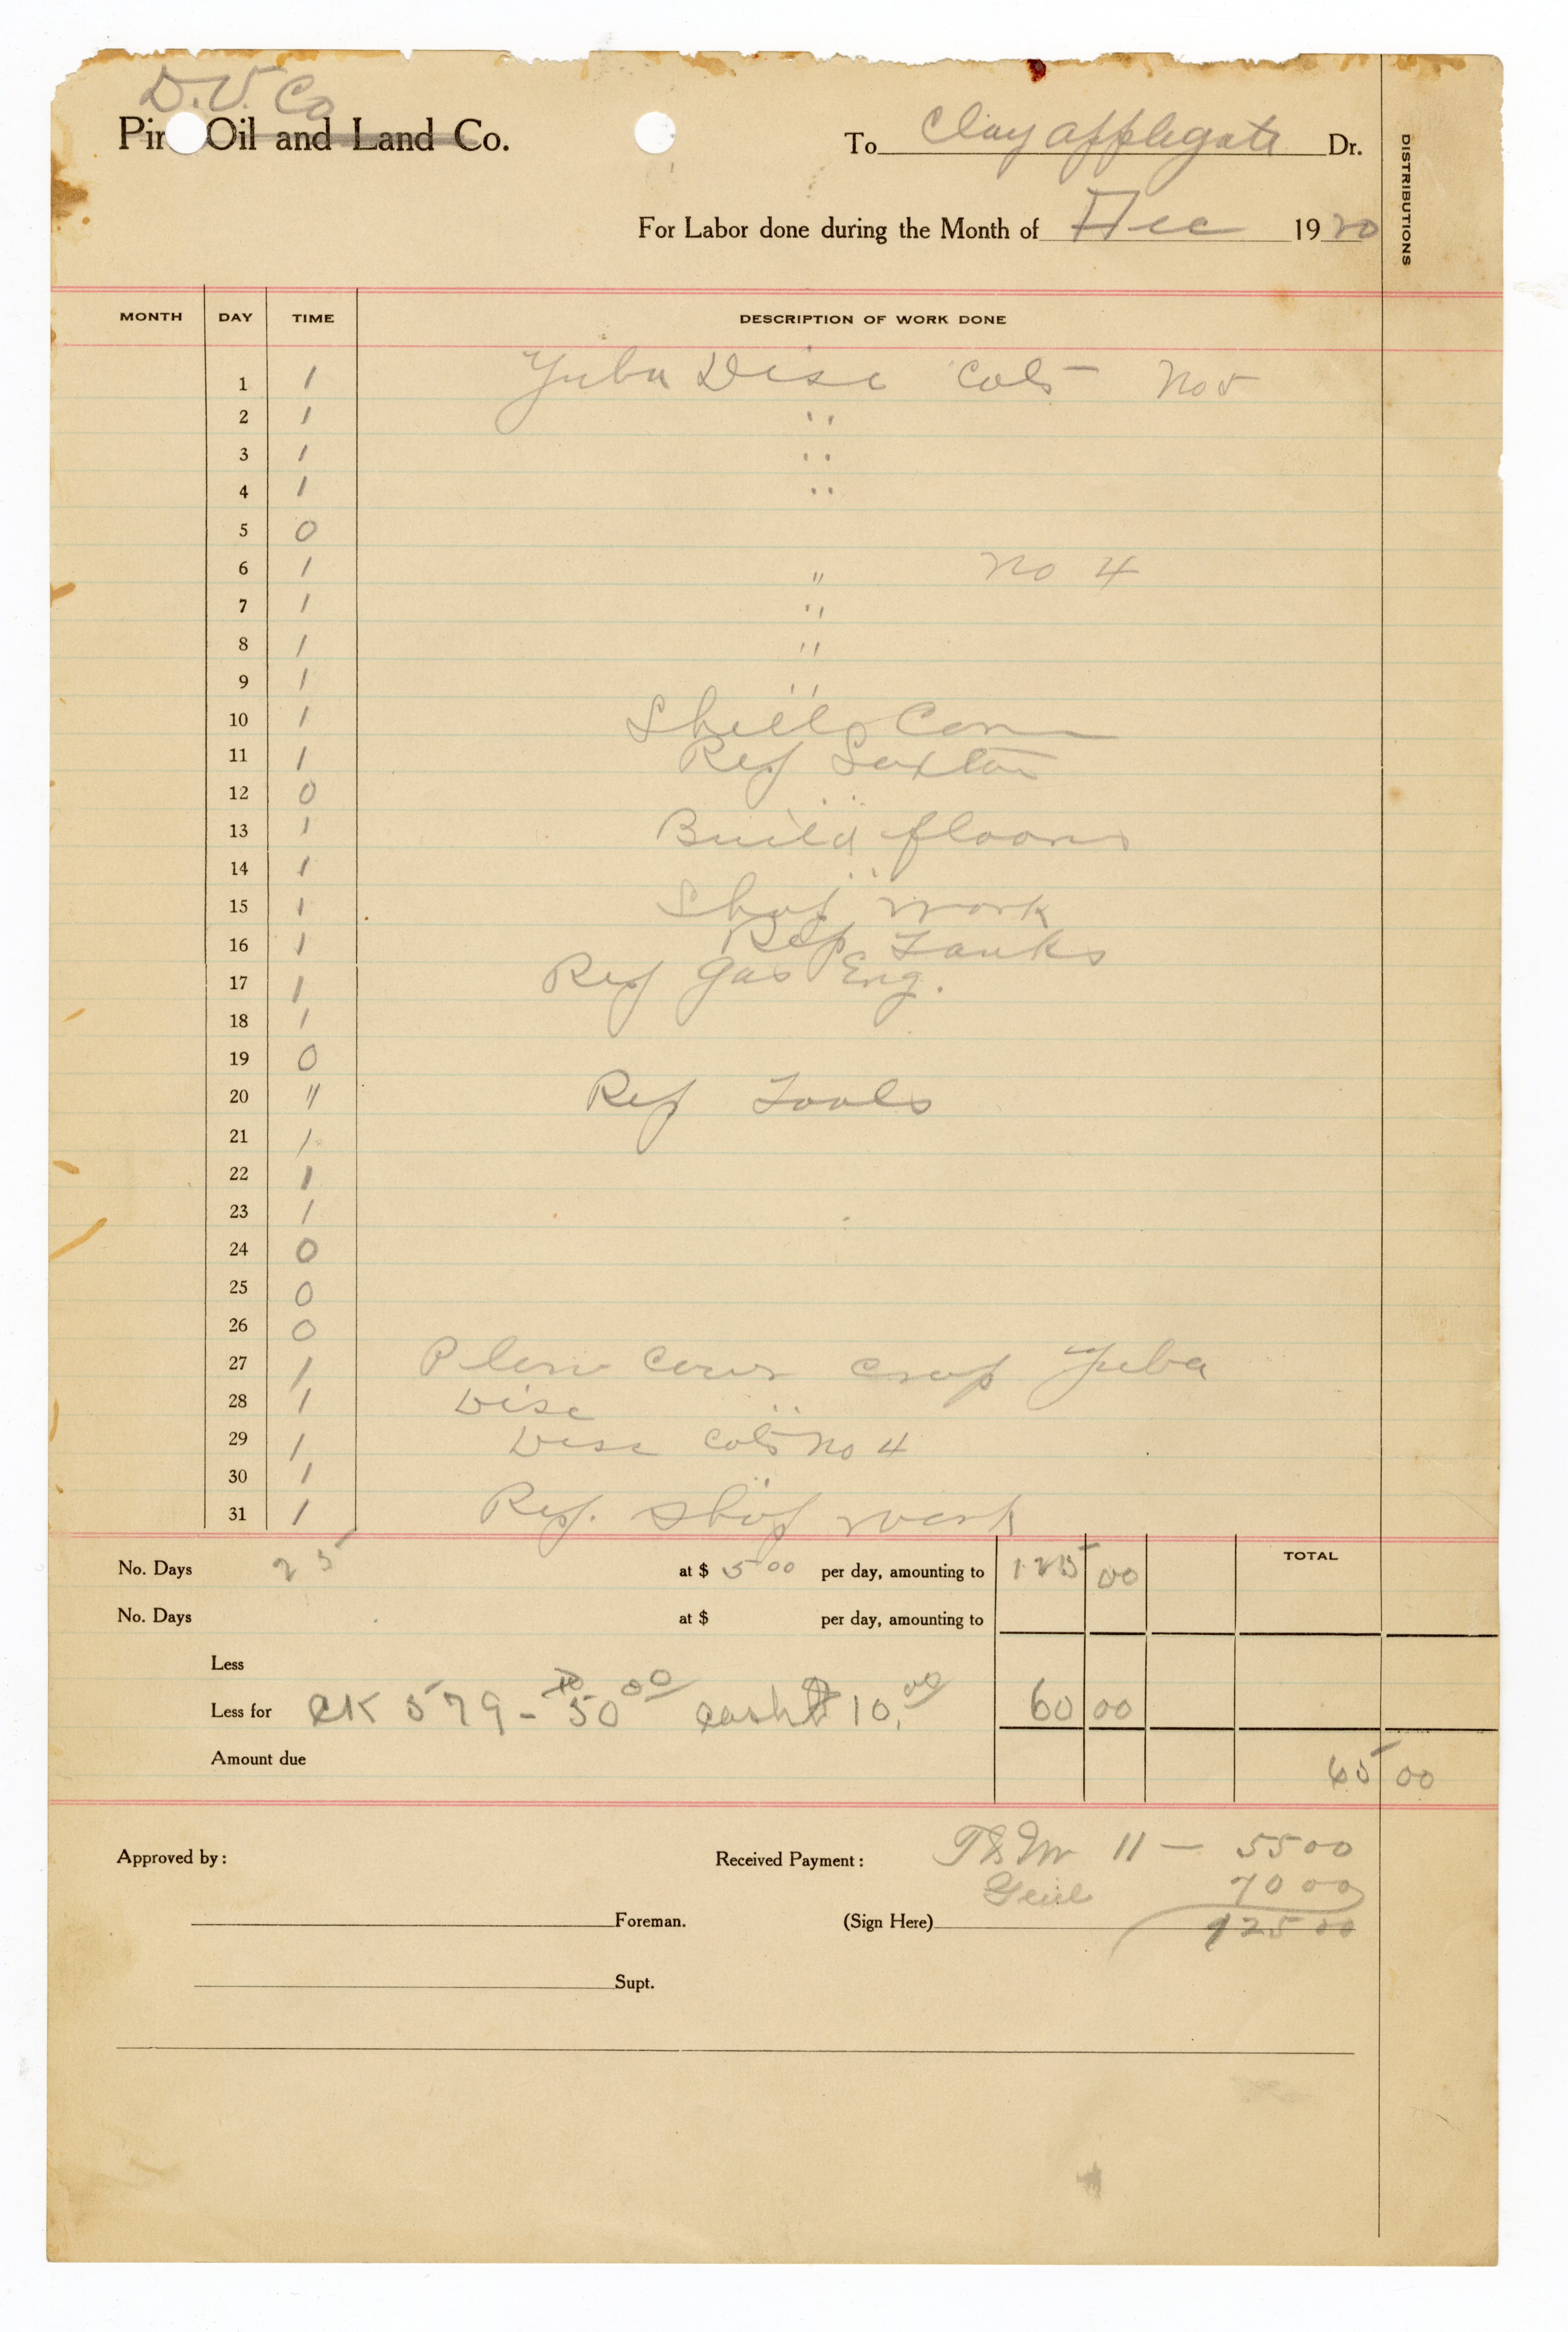 D.V. Co
Pin Oil and Land Co.
To Clay Applegate Dr.
DISTRIBUTIONS
For Labor done during the Month of Dec 1920
MONTH DAY TIME DESCRIPTION OF WORK DONE
1 1 Yuba Disc Cots No 5
2 1 "
3 1 "
4 1 "
5 0
6 1 " No 4
7 1 "
8 1 "
9 1 "
10 1 Corn
11 1 Rep
12 0 "
13 1 Build floors
14 1 "
15 1 Shop work
16 1 Rep Tanks
17 1 Rep Gas Eng.
18 1
19 0
20 " Rep Tools
21 1
22 1
23 1
24 0
25 0
26 0
27 1 Plow Cover crop Yuba
28 1 Disc "
29 1 Disc Cots No 4
30 1 "
31 1 Rep. Shop work
No. Days 25 at $ 5 00 per day, amounting to 125 00 TOTAL
No. Days at $ per day, amounting to
Less
Less for CK 579 - 50 00 cash 10.00 60 00
Amount due 65 00
Approved by: Received Payment: 11 — 55 00
70 00
Foreman. (Sign Here) 125 00
Supt.